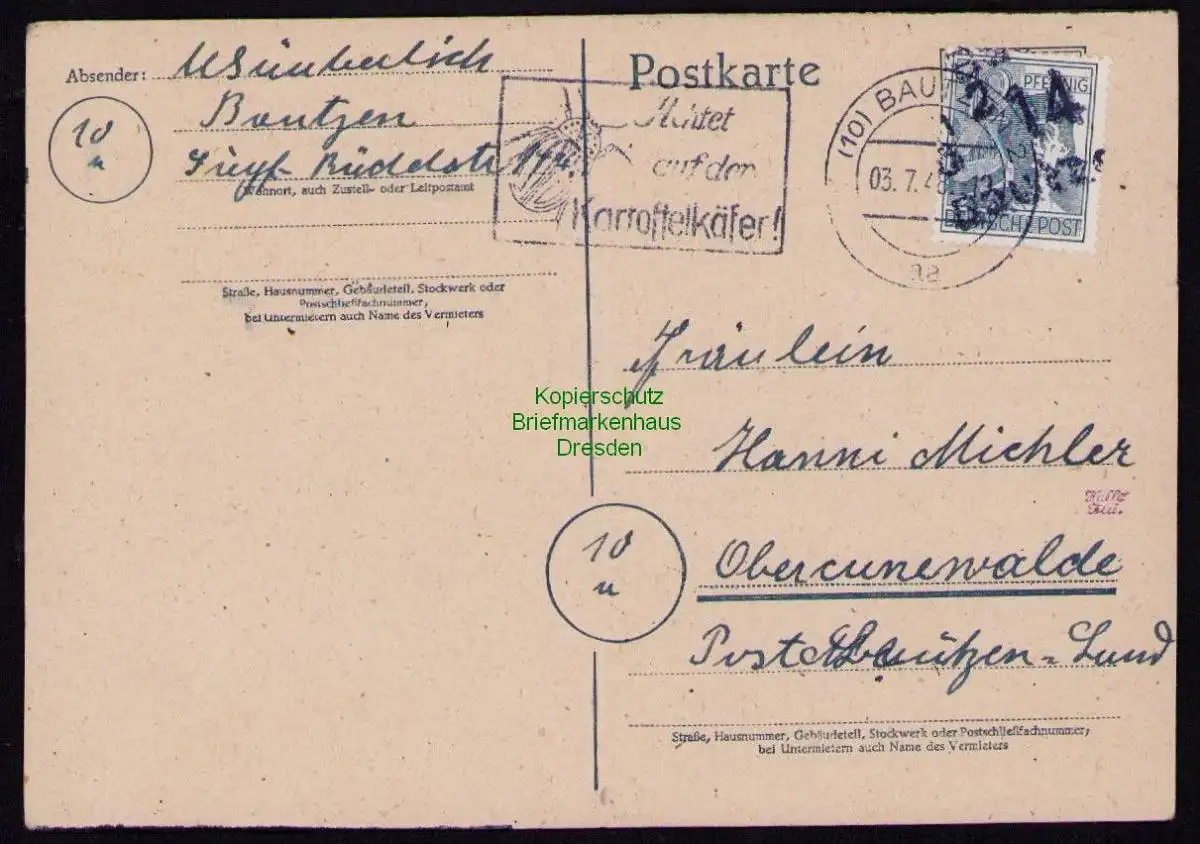 Postkarte
Absender: Wünderlich
Bautzen
10
Wohnort, auch Zustell- oder Leitpostamt
Straße, Hausnummer, Gebäudeteil, Stockwerk oder
Postschließfachnummer,
bei Untermietern auch Name des Vermieters
Achtet
auf den
Kartoffelkäfer!
(10) BAUTZEN 2
03.7.48
aa
PFENNIG
14
Bautzen
DEUTSCHE POST
Fräulein
Kopierschutz
Briefmarkenhaus
Dresden
Hanni Michler
10
Obercunewalde
Bautzen-Land
Straße, Hausnummer, Gebäudeteil, Stockwerk oder Postschließfachnummer,
bei Untermietern auch Name des Vermieters